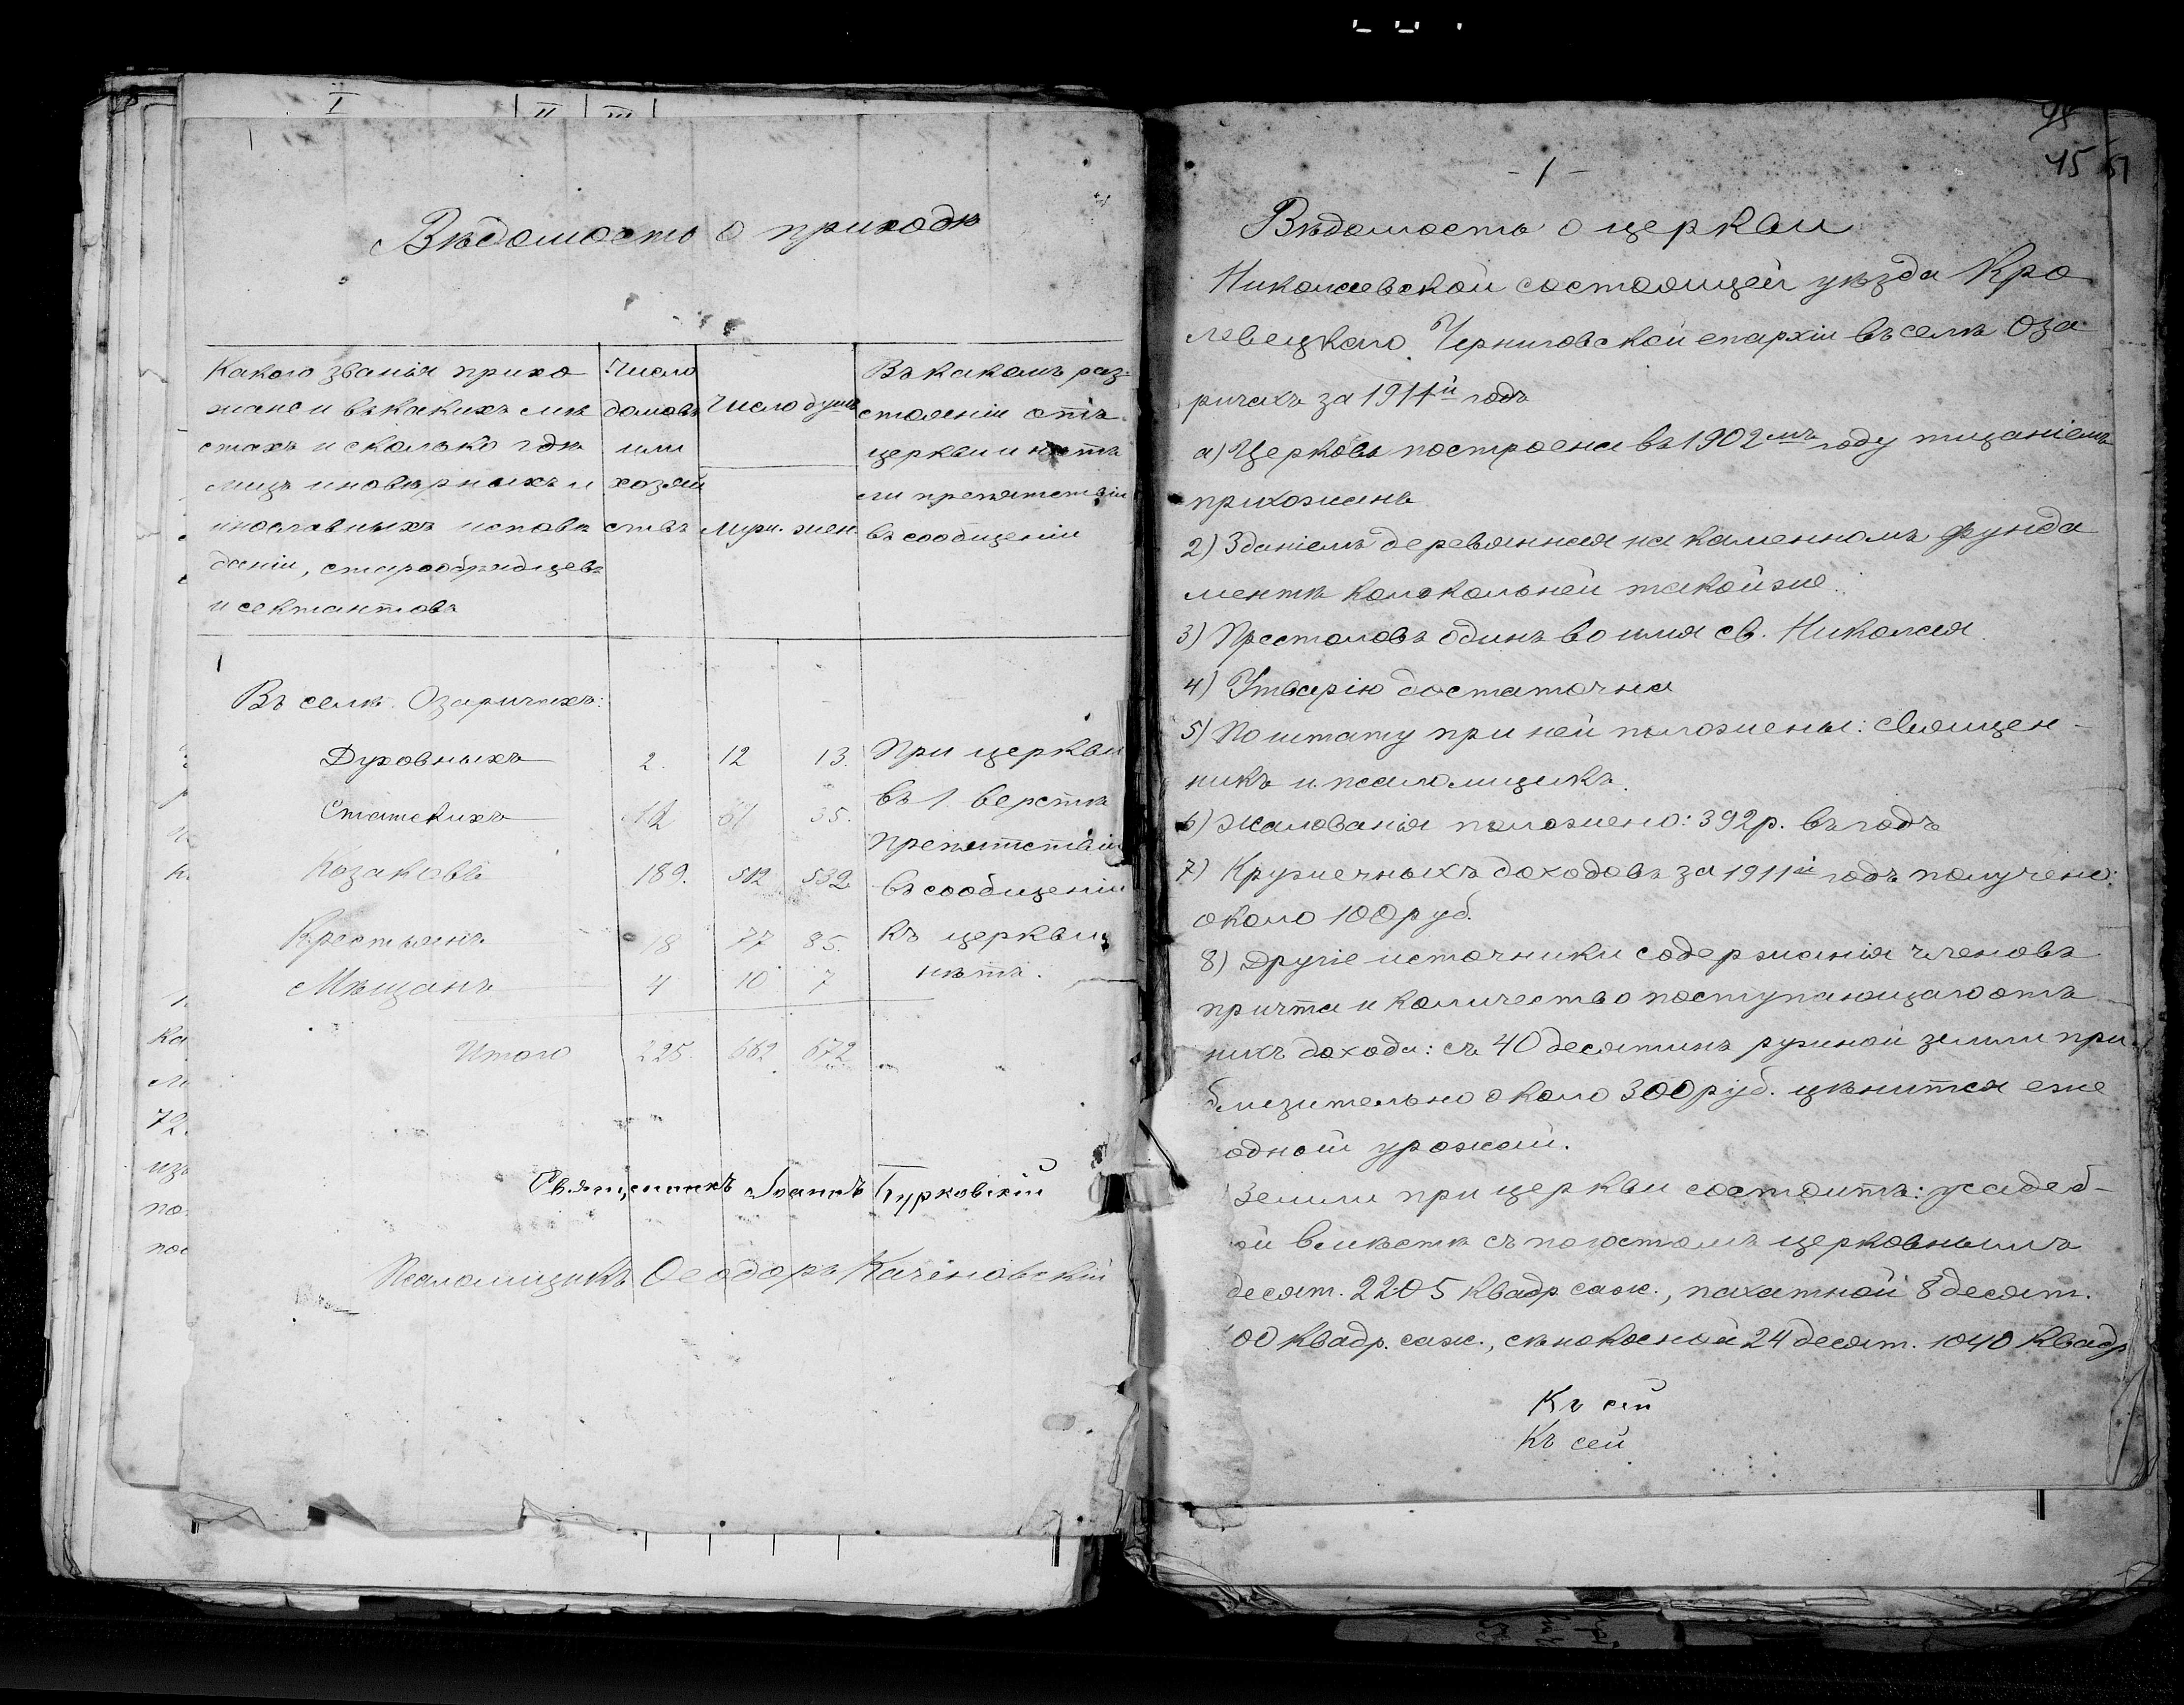 I II III
Вѣдомость о приходѣ
Какого званія прихо
жане и въ какихъ мѣ
стахъ и сколько гдѣ
лицъ иновѣрныхъ и
инославныхъ исповѣ
даніи, старообрядцевъ
и сектантовъ
Число
домовъ
или
хозяй
ствъ
Число душъ
Муж. жен.
Въ какомъ раз-
стояніи отъ
церкви и нѣтъ
ли препятствій
въ сообщеніи
1
Въ селѣ Озаричахъ:
Духовныхъ 2. 12 13. При церкви
Статскихъ 12 61 35. въ 1 верстѣ
Препятствій
Козаковъ 189. 502 532 въ сообщеніи
Крестьянъ 18 77 85. къ церкви
Мѣщанъ 4 10 7 нѣтъ.
Итого 225. 662 672
Священникъ Іоаннъ Бурковскій
Псаломщикъ Ѳеодоръ Каченовскій
45 51
- 1 -
Вѣдомость о церкви
Николаевской состоящей уѣзда Кро
левецкаго Черниговской епархіи въ селѣ Оза
ричахъ за 1911й годъ
а) Церковь построена въ 1902мъ году тщаніемъ
прихожанъ
2) Зданіемъ деревянная на каменномъ фунда
ментѣ колокольней такой же.
3) Престоловъ одинъ во имя св. Николая.
4) Утварію достаточна
5) По штату при ней положены: Священ-
никъ и псаломщикъ.
6) Жалованія положено: 392 р. въ годъ
7) Кружечныхъ доходовъ за 1911й годъ получено:
около 100 руб.
8) Другіе источники содержанія членовъ
причта и количество поступающаго отъ
нихъ дохода: съ 40 десятинъ ружной земли при
близительно около 300 руб. цѣнится еже
одной урожай.
Земли при церкви состоитъ: усадеб-
ой вмѣстѣ съ погостомъ церковнымъ
десят. 2205 квадр. саж., пахатной 8 десят.
00 квадр. саж., сѣнокосной 24 десят. 1040 квадр
Къ сей
Къ сей